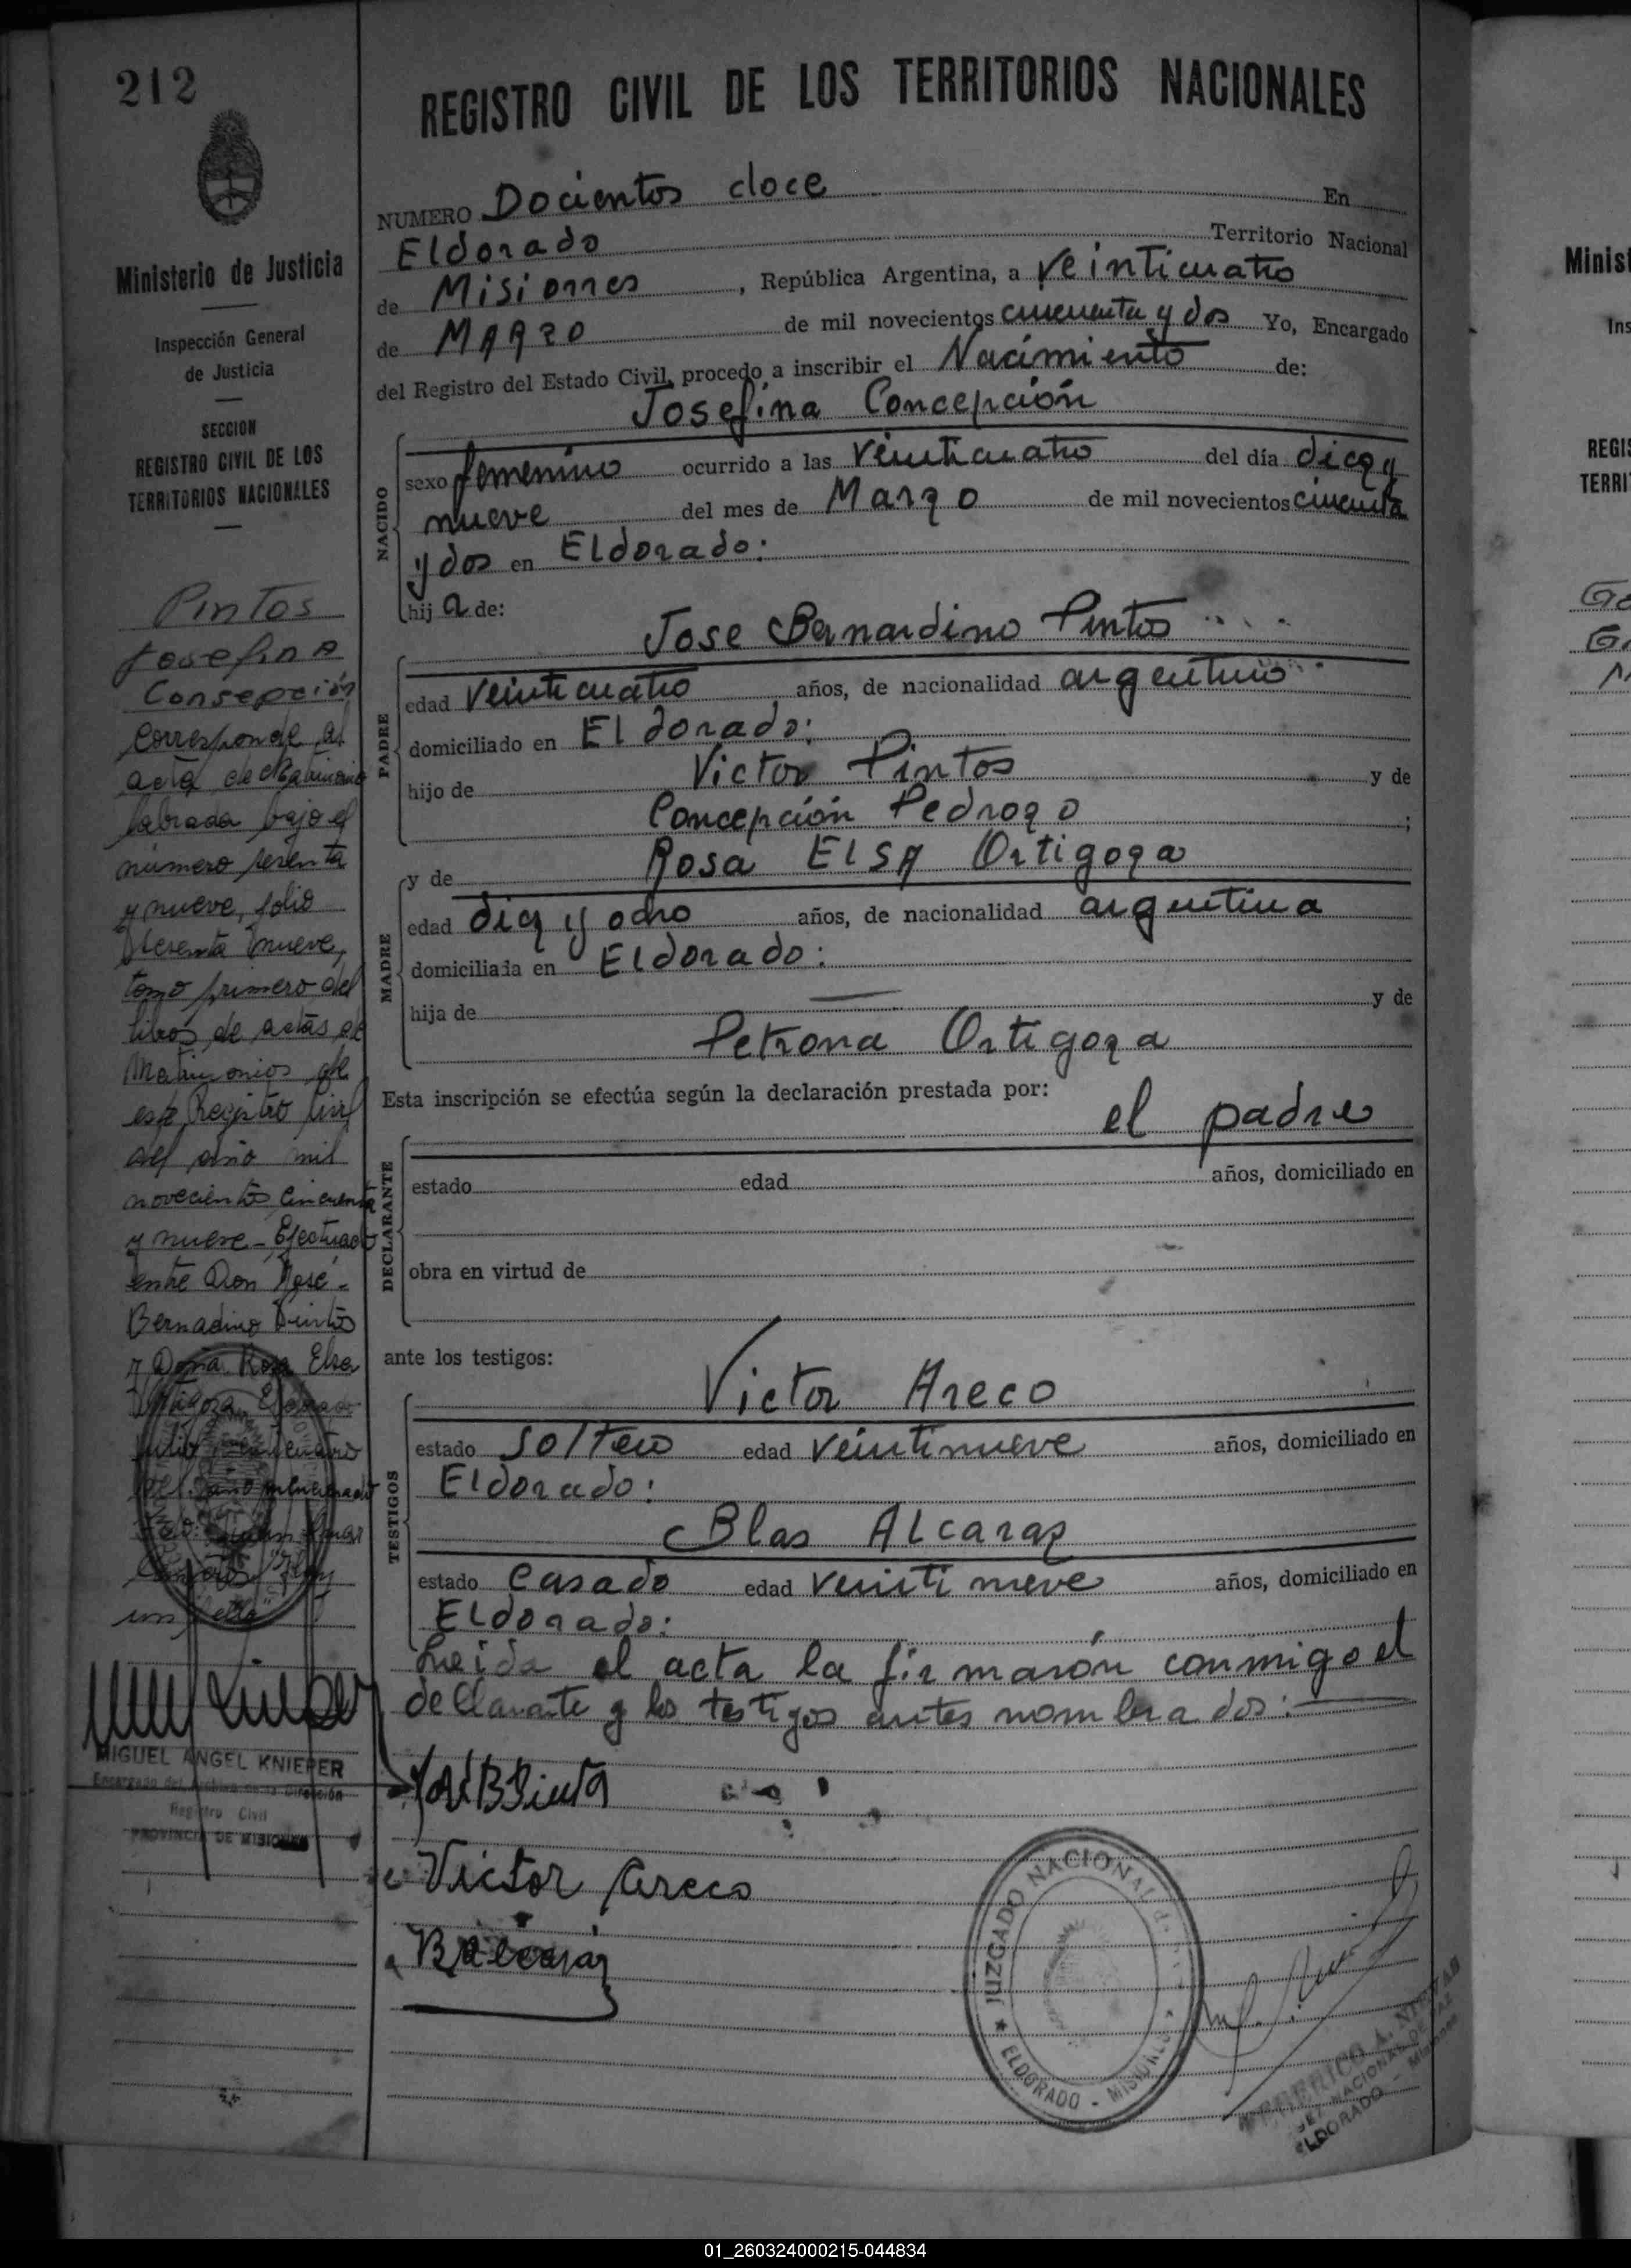 212
REGISTRO CIVIL DE LOS TERRITORIOS NACIONALES
Ministerio de Justicia
Inspección General
de Justicia
SECCION
REGISTRO CIVIL DE LOS
TERRITORIOS NACIONALES
NUMERO Docientos doce En
Eldorado Territorio Nacional
de Misiones, República Argentina, a veinticuatro
de MARZO de mil novecientos cincuenta y dos Yo, Encargado
del Registro del Estado Civil, procedo a inscribir el Nacimiento de:
Josefina Concepción
NACIDO
sexo femenino ocurrido a las veinticuatro del día diez y
nueve del mes de Marzo de mil novecientos cincuenta
y dos en Eldorado:
hij a de:
Jose Bernardino Pintos
PADRE
edad veinticuatro años, de nacionalidad argentino
domiciliado en Eldorado:
hijo de Victor Pintos y de
Concepción Pedrozo ;
y de Rosa Elsa Ortigoza
MADRE
edad diez y ocho años, de nacionalidad argentina
domiciliada en Eldorado:
hija de — y de
Petrona Ortigoza
Esta inscripción se efectúa según la declaración prestada por:
el padre
DECLARANTE
estado edad años, domiciliado en
obra en virtud de
ante los testigos:
Victor Areco
TESTIGOS
estado soltero edad veintinueve años, domiciliado en
Eldorado:
Blas Alcaraz
estado casado edad veinti nueve años, domiciliado en
Eldorado:
Leida el acta la firmarón conmigo el
declarante y los testigos antes nombrados:
Victor Areco
Pintos
Josefina
Consepción
Corresponde al
acta de Matrimonio
labrada bajo el
número sesenta
y nueve, folio
sesenta nueve,
tomo primero del
libros de actas de
Matrimonios de
este Registro Civil
del año mil
novecientos cincuenta
y nueve - Efectuado
entre Don José
Bernadino Pintos
y Doña Rosa Elsa
Ortigoza Eldorado
Julio veinticuatro
del año mencionado
un sello"
MIGUEL ANGEL KNIEPER
Encargado del Archivo de la Dirección
Registro Civil
PROVINCIA DE MISIONES
JUZGADO NACIONAL
ELDORADO - MISIONES
JUEZ NACIONAL DE PAZ
ELDORADO - Misiones
Minist
Ins
REGIS
TERRI
01_260324000215-044834